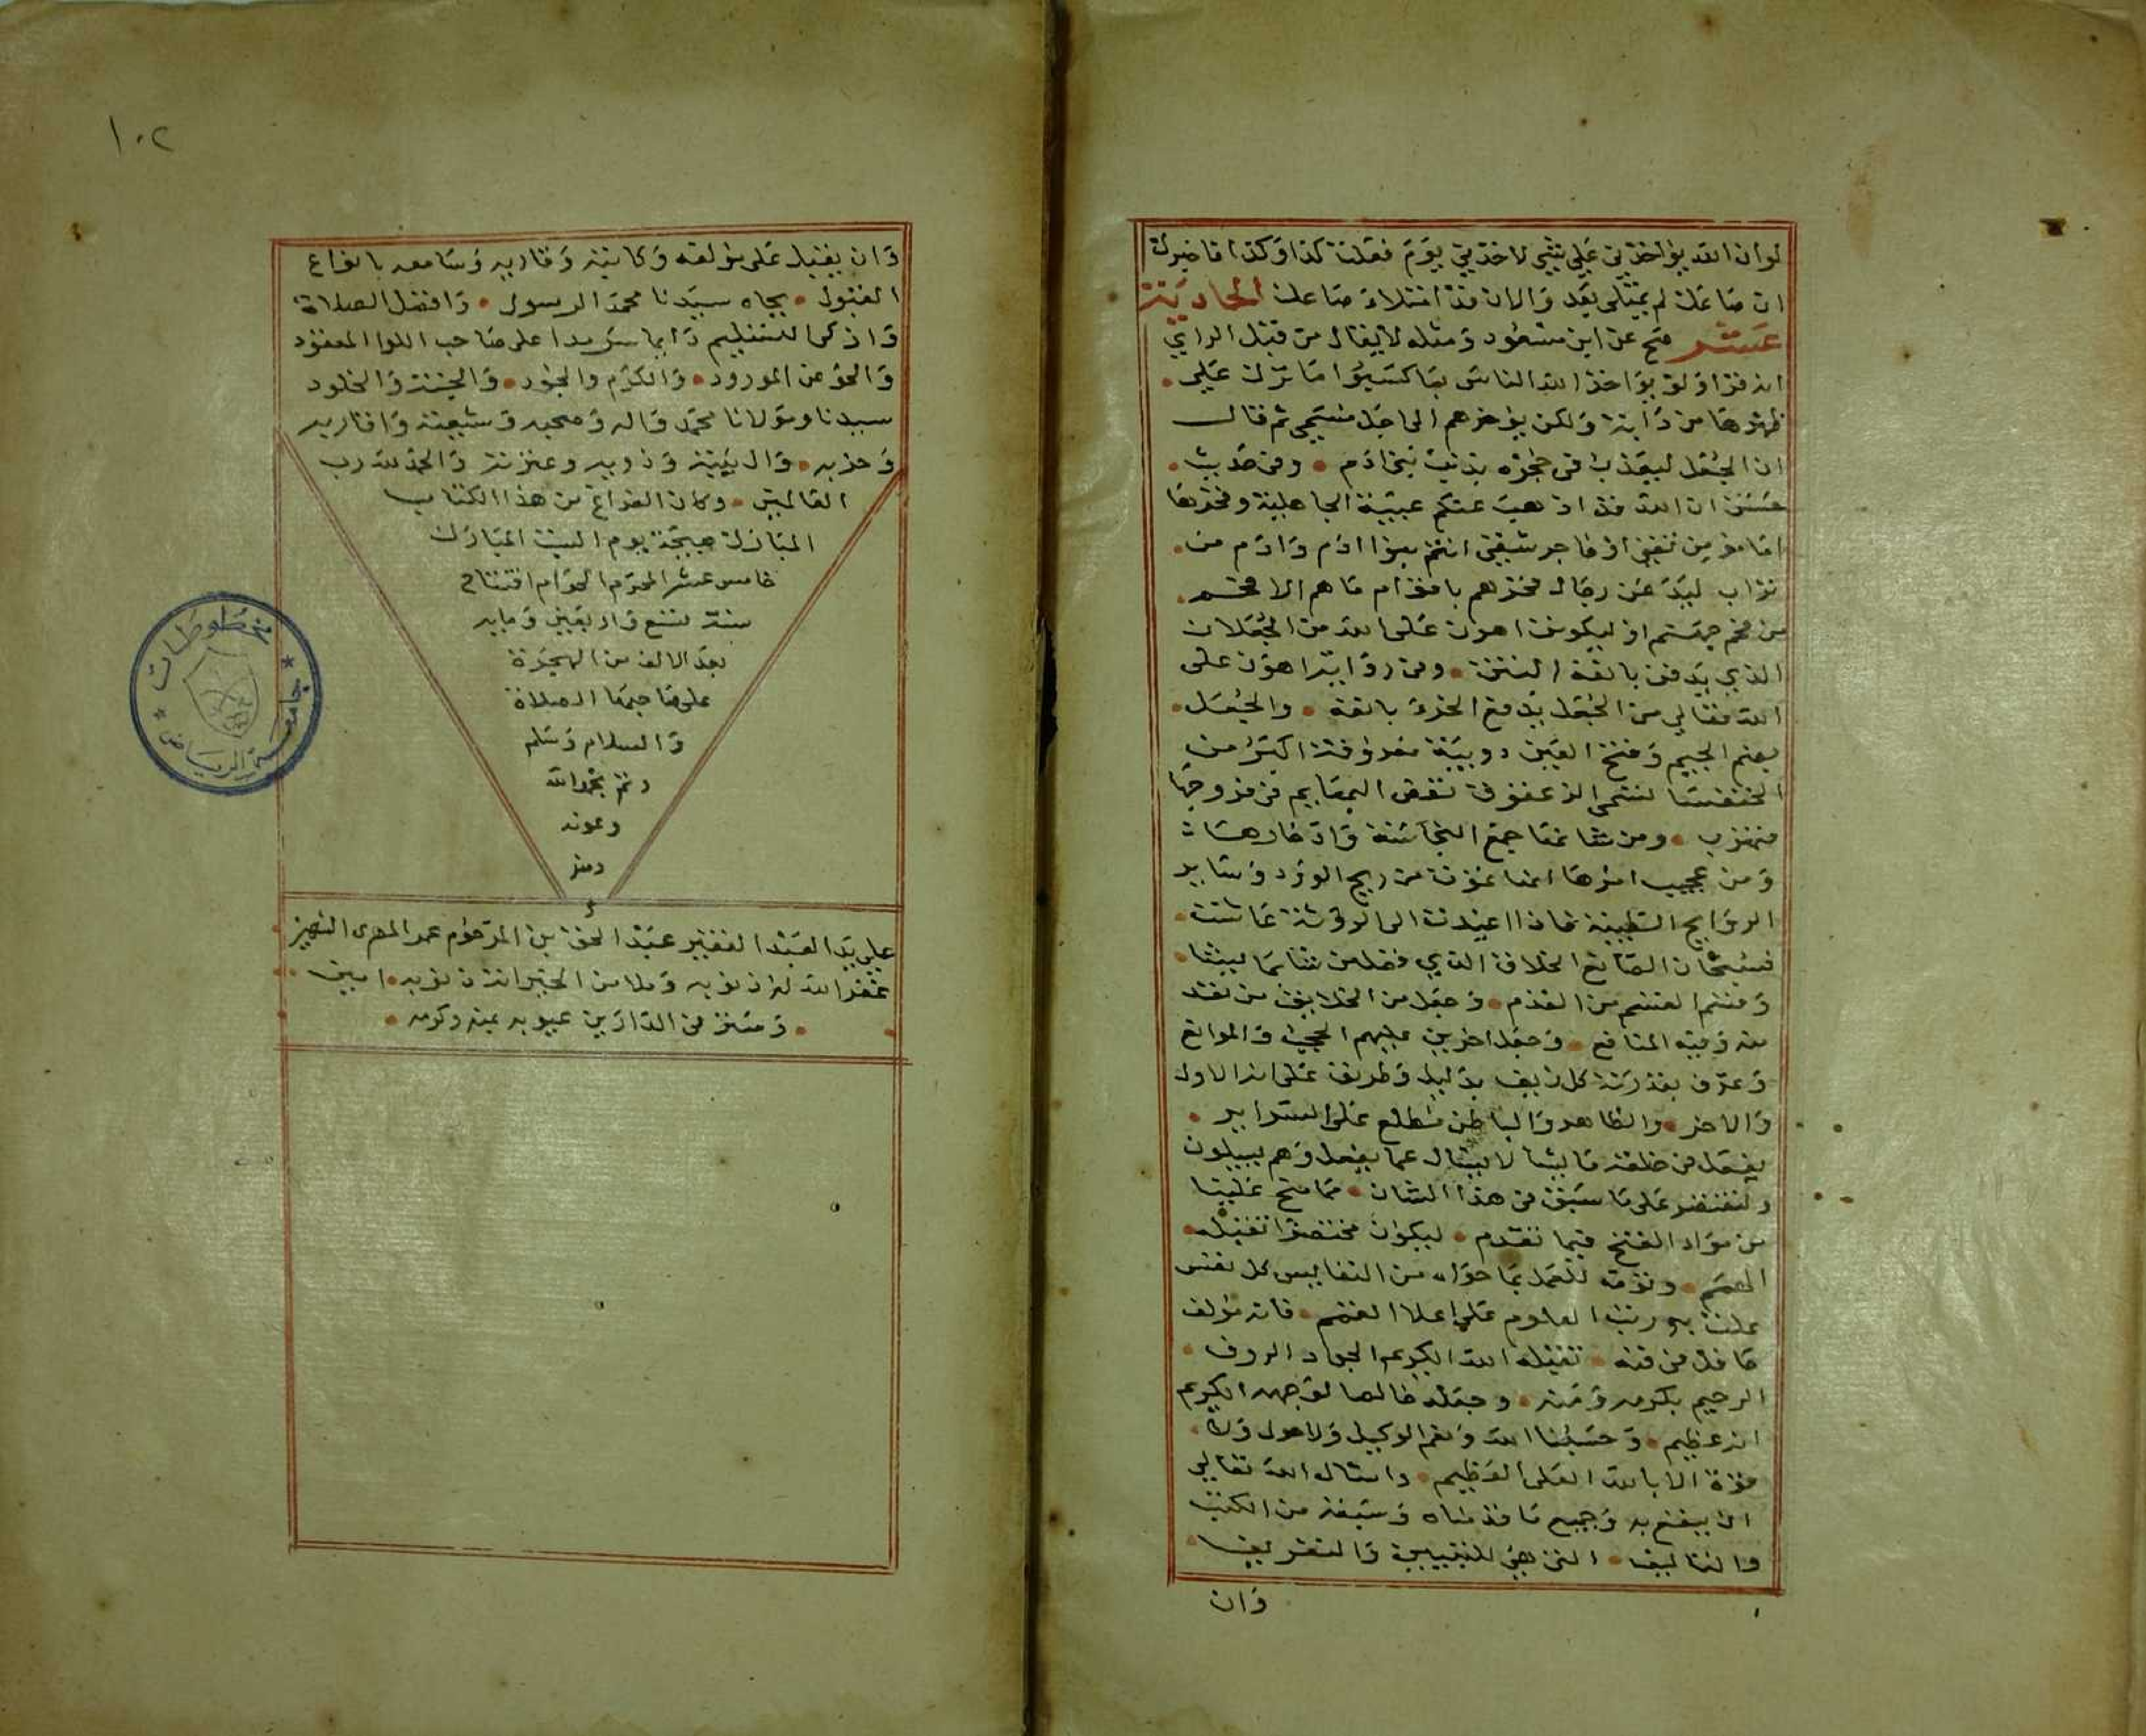 لو ان الله يؤاخذني على شي لاخذني يوم فعلت كذا وكذا فاخبرك
ان صاعك لم يمتلي بعد والان قد امتلاء صاعك الحادية
عشر صح عن ابن مسعود ومثله لا يقال من قبل الراي
انه قرا ولو يؤاخذ الله الناس بما كسبوا ما ترك على
ظهرها من دابة ولكن يؤخرهم الى اجل مسمى ثم قال
ان الجعل ليعذب في حجره بذنب بني ادم وفي حديث
حسن ان الله قد اذهب عنكم عبية الجاهلية وفخرها
اما مؤمن تقي او فاجر شقي انتم بنوا ادم وادم من
تراب ليدعن رجال فخرهم باقوام ما هم الا فحم
من فحم جهنم او ليكونن اهون على الله من الجعلان
الذي يدفن بانفه النتن وفي رواية اهون على
الله تعالى من الجعل يدفع الخرء بانفه والجعل
بضم الجيم وفتح العين دويبة معروفة اكبر من
الخنفسا تسمى الزعقوق تعض البهايم في فروجها
فتهرب ومن شانها جمع النجاسة وادخارها
ومن عجيب امرها انها تموت من ريح الورد وساير
الروايح الطيبة فاذا اعيدت الى الروث عاشت
فسبحان الصانع الخلاق الذي فضل من شا بما يشا
وقسم القسم من القدم وجعل من الخلايق من نفذ
منه وفيه المنافع وجعل اخرين عليهم الحجب والموانع
وعرف بقدرته كل زيف بدليل وطريف على انه الاول
والاخر والظاهر والباطن مطلع على السراير
يفعل في خلقه ما يشا لا يسال عما يفعل وهم يسيلون
ولنقتصر على ما سبق في هذا الشان مما منح علينا
من مواد الفتح فيما تقدم ليكون مختصرا تقبله
الهمم وتؤمه للعمل بما حواه من النفايس كل نفس
علت به رتب العلوم على اعلا القمم فانه مؤلف
ما في فنه تقبله الله الكريم الجواد الروف
الرحيم بكرمه ومنه وجعله خالصا لوجهه الكريم
انه عظيم وحسبنا الله ونعم الوكيل ولا حول ولا
قوة الا بالله العلي العظيم واسال الله تعالى
ان ينفع به وجميع ما قدمناه وسبقه من الكتب
والتاليف التي هي للنتيجة والتعريف
وان
١٠٢
وان يقبل على مؤلفه وكاتبه وقاريه وسامعه بانواع
القبول بجاه سيدنا محمد الرسول وافضل الصلاة
وازكى التسليم دايما سرمدا على صاحب اللوا المعقود
والحوض المورود والكرم والجود والجنة والخلود
سيدنا ومولانا محمد واله وصحبه وشيعته واقاربه
وحزبه وال بيته وذويه وعترته والحمد لله رب
العالمين وكان الفراغ من هذا الكتاب
المبارك صبيحة يوم السبت المبارك
خامس عشر المحرم الحرام افتتاح
سنة تسع واربعين ومايه
بعد الالف من الهجرة
على صاحبها الصلاة
والسلام وسلم
وتم بحمد الله
وعونه
ومنه
على يد العبد الفقير عبد الحق بن المرحوم عمر المهدي الشهير
غفر الله له ذنوبه وملا من الخيرات ذنوبه امين
وستر في الدارين عيوبه بمنه وكرمه
جامعة الرياض
مخطوطات